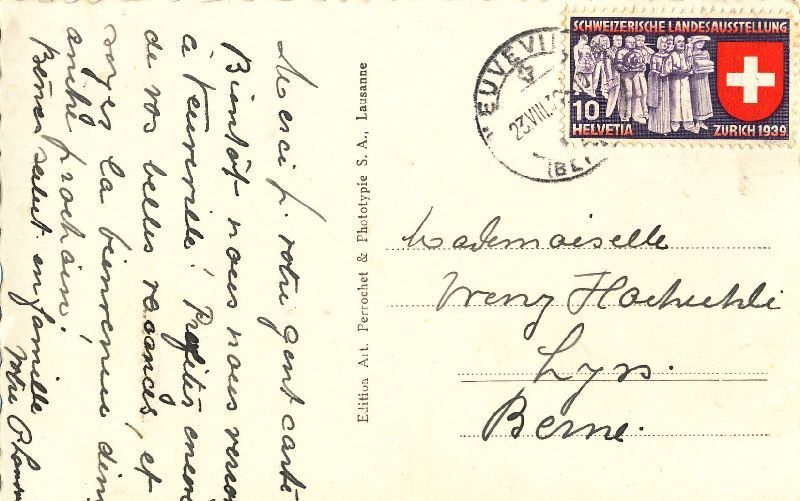 SCHWEIZERISCHE LANDESAUSSTELLUNG
10
HELVETIA
ZÜRICH 1939
NEUVEVILLE
23.VIII.39
(BE)
Merci p. votre gent. carte
Bientôt nous nous verrons
à Neuveville! Profitez encore
de vos belles vacances, et
soyez la bienvenue dim
anche prochain!
salut en famille
Votre
Edition Art. Perrochet & Phototypie S. A., Lausanne
Mademoiselle
Vreny
Lyss.
Berne.